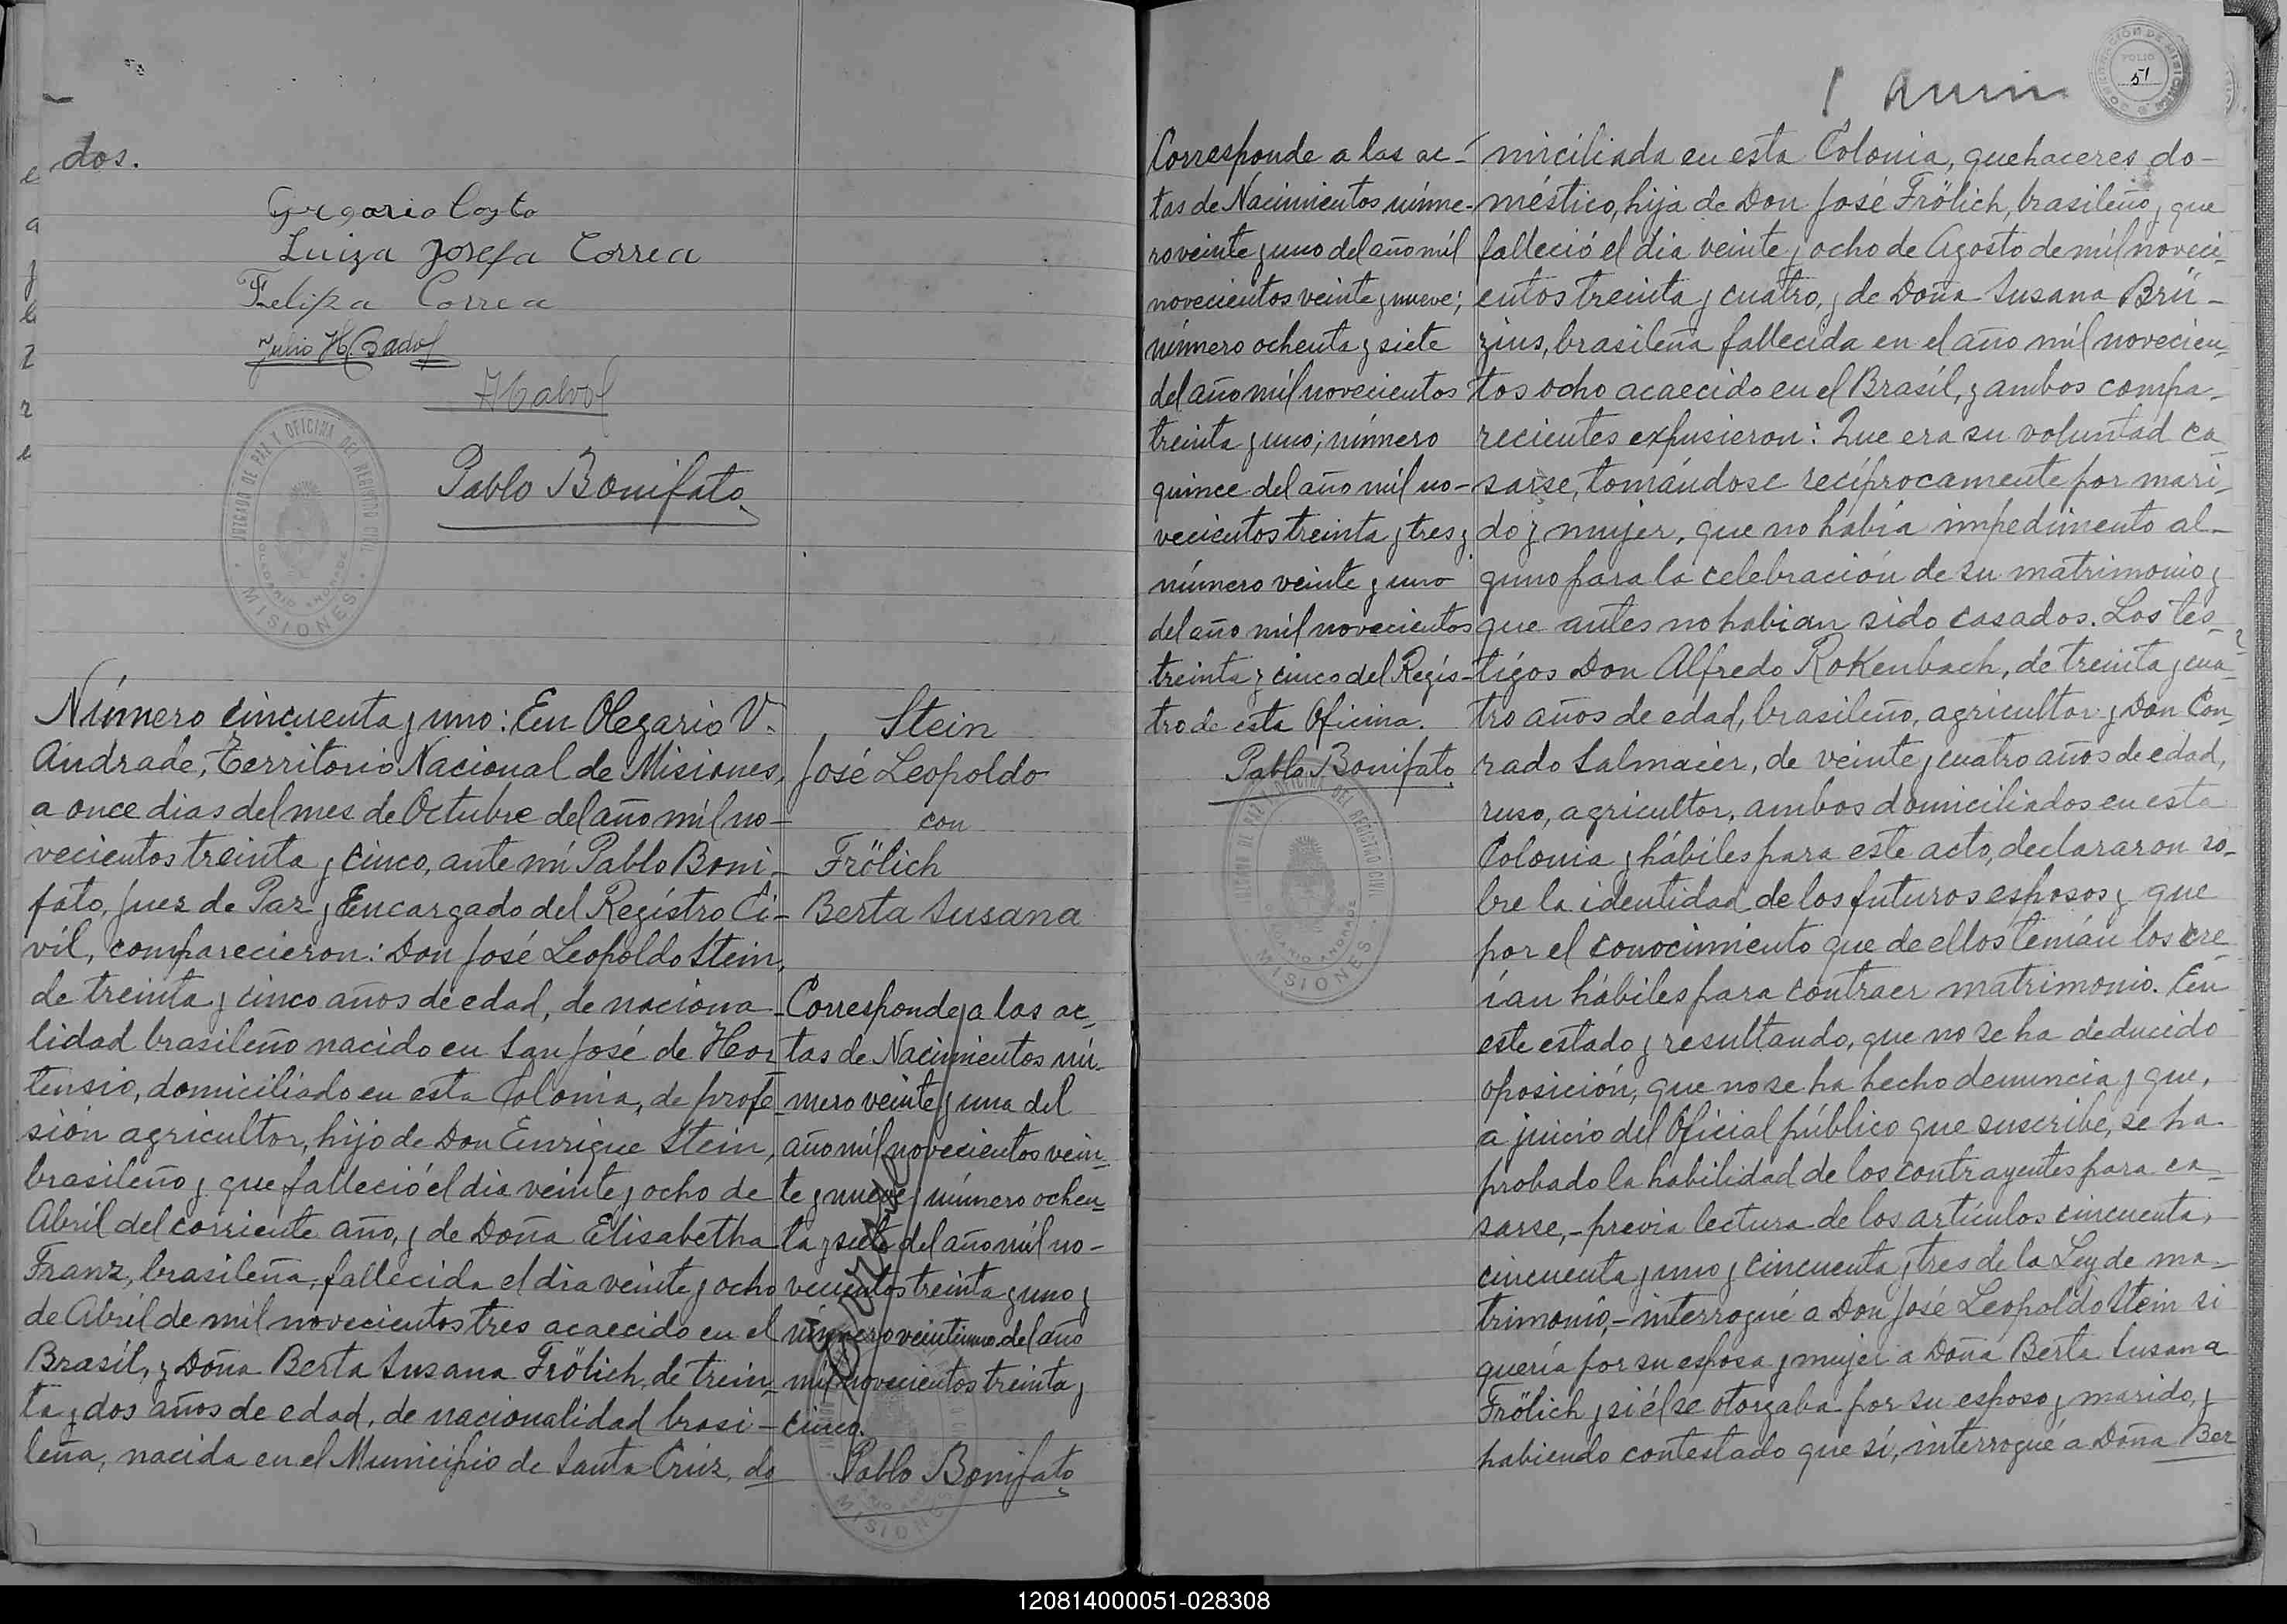 dos.
Gregorio Coyto
Luiza Josefa Correa
Felipa Correa
Pablo Bonifato
JUZGADO DE PAZ Y OFICINA DEL REGISTRO CIVIL
MISIONES
Número cincuenta y uno: En Olegario V.
Andrade, Territorio Nacional de Misiones,
a once dias del mes de Octubre del año mil no-
vecientos treinta y cinco, ante mí Pablo Boni-
fato, Juez de Paz y Encargado del Regístro Ci-
vil, comparecieron: Don José Leopoldo Stein,
de treinta y cinco años de edad, de naciona-
lidad brasileño nacido en San José de Hor-
tensio, domiciliado en esta Colonia, de profe-
sión agricultor, hijo de Don Enrique Stein,
brasileño y que falleció el dia veinte y ocho de
Abril del corriente año, y de Doña Elisabetha
Franz, brasileña, fallecida el dia veinte y ocho
de Abril de mil novecientos tres acaecido en el
Brasil, y Doña Berta Susana Frölich, de trein-
ta y dos años de edad, de nacionalidad brasi-
leña, nacida en el Municipio de Santa Crúz, do
Stein
José Leopoldo
con
Frölich
Berta Susana
Corresponde a las ac-
tas de Nacimientos nú-
mero veinte y una del
año mil novecientos vein-
te y nueve, número ochen-
ta y siete del año mil no-
vecientos treinta y uno y
número veintiuno del año
mil novecientos treinta y
cinco.
Pablo Bonifato
MISIONES
GOBERNACION DE MISIONES
FOLIO
51
Corresponde a las ac-
tas de Nacimientos núme-
ro veinte y uno del año mil
novecientos veinte y nueve;
número ochenta y siete
del año mil novecientos
treinta y uno; número
quince del año mil no-
vecientos treinta y tres y
número veinte y uno
del año mil novecientos
treinta y cinco del Regis-
tro de esta Oficina.
Pablo Bonifato
JUZGADO DE PAZ Y OFICINA DEL REGISTRO CIVIL
OLEGARIO ANDRADE
MISIONES
miciliada en esta Colonia, quehaceres do-
méstico, hija de Don José Frölich, brasileño y que
falleció el dia veinte y ocho de Agosto de mil noveci-
entos treinta y cuatro, y de Doña Susana Brü-
zius, brasileña fallecida en el año mil novecien-
tos ocho acaecido en el Brasíl, y ambos compa-
recientes expusieron: Que era su voluntad ca-
sarse, tomándose recíprocamente por mari-
do y mujer, que no había impedimento al-
guno para la celebración de su matrimonio y
que antes no habian sido casados. Los tes-
tigos Don Alfredo Rokenbach, de treinta y cua-
tro años de edad, brasileño, agricultor y Don Con-
rado Salmaier, de veinte y cuatro años de edad,
ruso, agricultor, ambos domiciliados en esta
Colonia y hábiles para este acto, declararon so-
bre la identidad de los futuros esposos y que
por el conocimiento que de ellos tenían los cre
ían hábiles para contraer matrimonio. En
este estado y resultando, que no se ha deducido
oposición, que no se ha hecho denuncia y que,
a juicio del Oficial público que suscribe, se ha
probado la habilidad de los contrayentes para ca-
sarse,- previa lectura de los artículos cincuenta,
cincuenta y uno y cincuenta y tres de la Ley de ma-
trimonio,- interrogué a Don José Leopoldo Stein si
quería por su esposa y mujer a Doña Berta Susana
Frölich y si él se otorgaba por su esposo y marido, y
habiendo contestado que sí, interrogué a Doña Ber
120814000051-028308